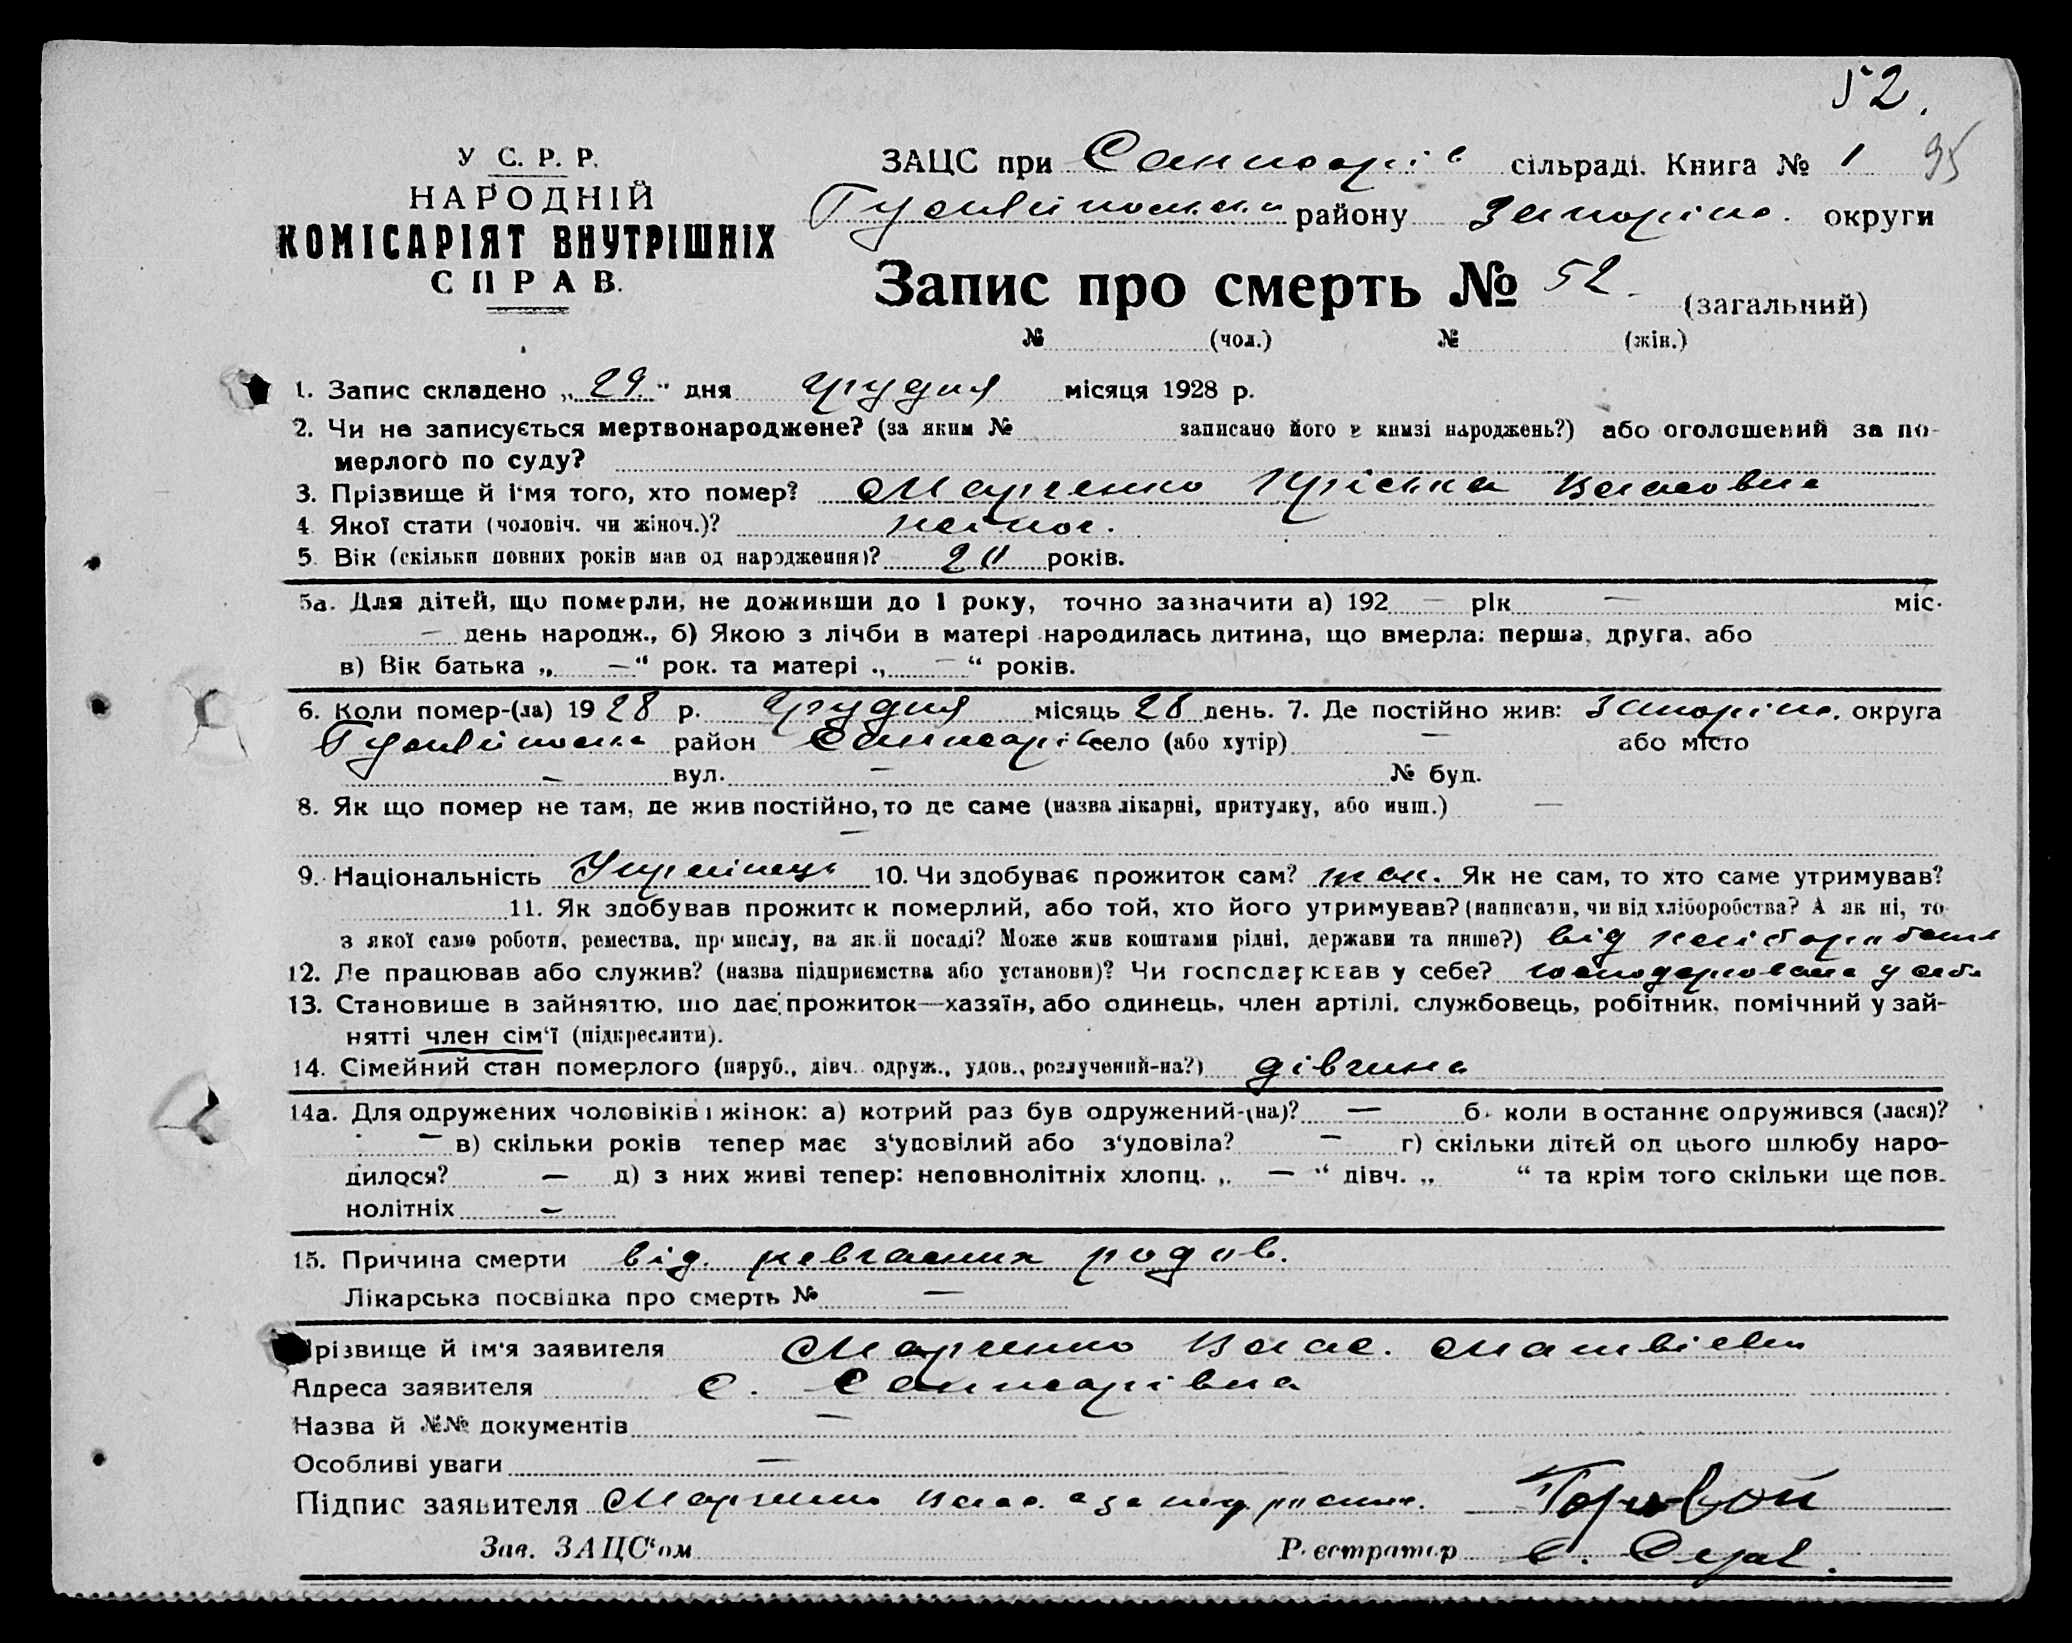 52.
95
У С. Р. Р.
НАРОДНІЙ
КОМІСАРІЯТ ВНУТРІШНІХ
СПРАВ.
ЗАЦС при сільраді. Книга № 1
району Запоріжс. округи
Запис про смерть № 52. (загальний)
№ (чол.) № (жін.)
1. Запис складено „ 29 " дня грудня місяця 1928 р.
2. Чи не записується мертвонароджене? (за яким № записано його в книзі народжень?) або оголошений за по-
мерлого по суду?
3. Прізвище й ім'я того, хто помер? Марченко Пріська Власовна
4. Якої стати (чоловіч. чи жіноч.)? жіноч.
5. Вік (скільки повних років мав од народження)? років.
5а. Для дітей, що померли, не доживши до 1 року, точно зазначити а) 192 — рік — міс.
— день народж., б) Якою з лічби в матері народилась дитина, що вмерла: перша, друга, або
в) Вік батька „ —“ рок. та матері „ — “ років.
6. Коли помер-(ла) 19 28 р. грудня місяць 28 день. 7. Де постійно жив: Запоріжс. округа
район село (або хутір) — або місто
— вул. — № буд.
8. Як що помер не там, де жив постійно, то де саме (назва лікарні, притулку, або инш.) —
—
9. Національність Українець 10. Чи здобуває прожиток сам? так. Як не сам, то хто саме утримував?
11. Як здобував прожиток померлий, або той, хто його утримував? (написати, чи від хліборобства? А як ні, то
з якої саме роботи, ремества, промислу, на якій посаді? Може жив коштами рідні, держави та инше?) від хліборобства
12. Де працював або служив? (назва підприємства або установи)? Чи господарював у себе? господарювала у себе
13. Становище в зайняттю, що дає прожиток—хазяїн, або одинець, член артілі, службовець, робітник, помічний у зай-
нятті член сім'ї (підкреслити).
14. Сімейний стан померлого (паруб., дівч. одруж., удов., розлучений-на?) дівчина
14а. Для одружених чоловіків і жінок: а) котрий раз був одружений-(на)? — б. коли в останнє одружився (лася)?
— в) скільки років тепер має з'удовілий або з'удовіла? — г) скільки дітей од цього шлюбу наро-
дилося? — д) з них живі тепер: неповнолітніх хлопц. „ — “ дівч. „ “ та крім того скільки ще пов-
нолітніх —
15. Причина смерти від невчасних родов.
Лікарська посвідка про смерть № —
Прізвище й ім'я заявителя Марченко Влас. Матвієвич
Адреса заявителя с.
Назва й №№ документів —
Особливі уваги —
Підпис заявителя Марченко Влас. а за
Зав. ЗАЦС'ом Реєстратор